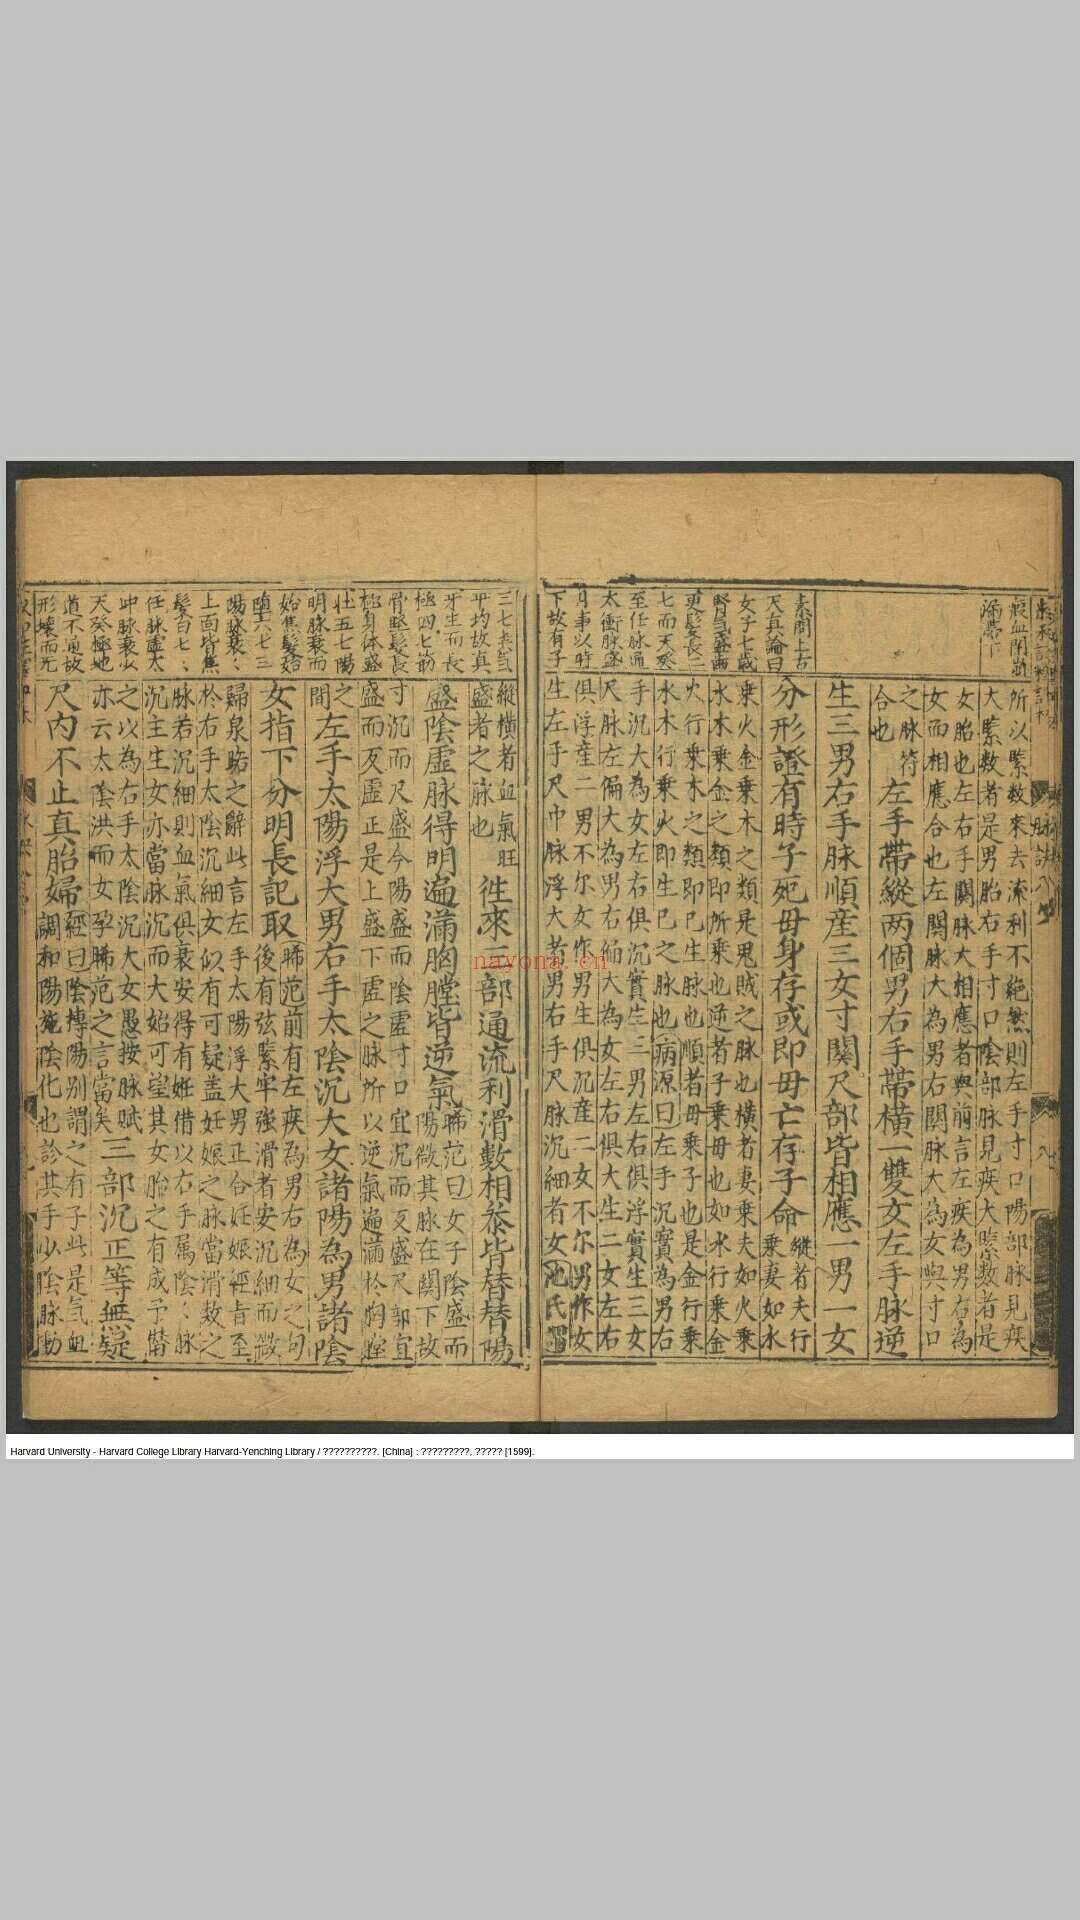 素問上古
天真論曰
女子七歲
腎氣盛齒
更髮長二
七而天癸
至任脉通
太衝脉盛
月事以時
下故有子
所以緊数來去流利不絕然則左手寸口陽部脉見疾
大緊数者是男胎右手寸口陰部脉見疾大緊数者是
女胎也左右手關脉大相應者與前言左疾為男右為
女而相應合也左關脉大為男右關脉大為女與寸口
之脉符
合也
左手帶縱两個男右手帶橫一雙女左手脉逆
生三男右手脉順産三女寸關尺部皆相應一男一女
分形證有時子死毋身存或即毋亡存子命
縱者夫行
乗妻如水
乗火金乗木之類是鬼賊之脉也橫者妻乗夫如火乗
水木乗金之類即所乗也逆者子乗母也如水行乗金
火行乗木之類即巳生脉也順者母乗子也是金行乗
水木行乗火即生巳之脉也病源曰左手沉實為男右
手沉大為女左右俱沉實生三男左右俱浮實生三女
尺脉左偏大為男右偏大為女左右俱大生二女左右
俱浮産二男不尔女作男生俱沉産二女不尔男作女
生左手尺中脉浮大者男右手尺脉沉細者女池氏
三七腎氣
平均故真
牙生而長
極四七筋
骨堅髮長
極身体盛
壮五七陽
明脉衰而
始焦髮始
墮六七三
陽脉衰
上面皆焦
髮白七
任脉虛太
冲脉衰少
天癸極地
道不通故
形壞而无
縱橫者血氣旺
盛者之脉也
徃來三部通流利滑數相叅皆替替陽
盛陰虛脉得明遍滿胸膛皆逆氣
晞范曰女子陰盛而
陽微其脉在關下故
寸沉而尺盛今陽盛而陰虛寸口宜沉而反盛尺部宜
盛而反虛正是上盛下虛之脉所以逆氣遍滿於胸膛
之
間
左手太陽浮大男右手太陰沉大女諸陽為男諸陰
女指下分明長記取
晞范前有左疾為男右為女之句
後有弦緊牢強滑者安沉細而微
歸泉路之辭此言左手太陽浮大男正合妊娠經旨至
於右手太陰沉細女似有可疑盖妊娠之脉當滑数之
脉若沉細則血氣俱衰安得有妊借以右手属陰脉
沉主生女亦當脉沉而大始可望其女胎之有成予替
之以為右手太陰沉大女愚按脉賦
亦云太陰洪而女孕晞范之言當矣
三部沉正等無疑
尺內不止真胎婦
經曰陰搏陽别謂之有子此是氣血
調和陽施陰化也診其手少陰脉動
nayona.cn
Harvard University - Harvard College Library Harvard-Yenching Library / ??????????. [China] : ?????????, ????? [1599].